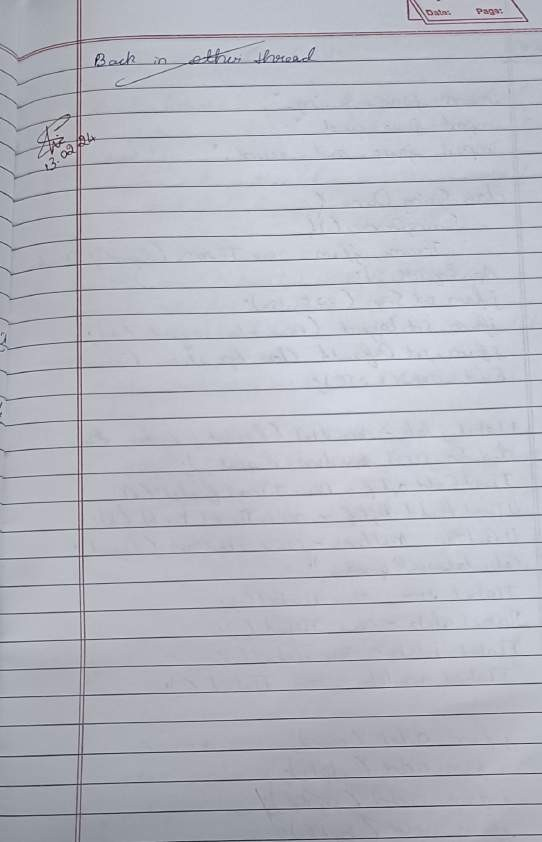 Date: Page:
Back in other thread
13.02.24